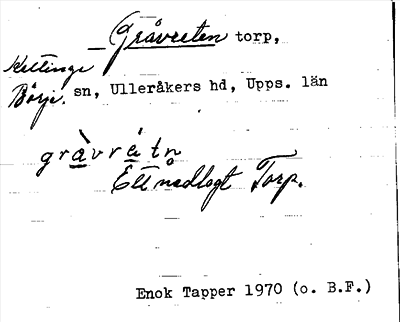 Gråvreten torp,
Kettinge
Börje. sn, Ulleråkers hd, Upps. län
gràvrétn
Ett nedlagt Torp.
Enok Tapper 1970 (o. B.F.)